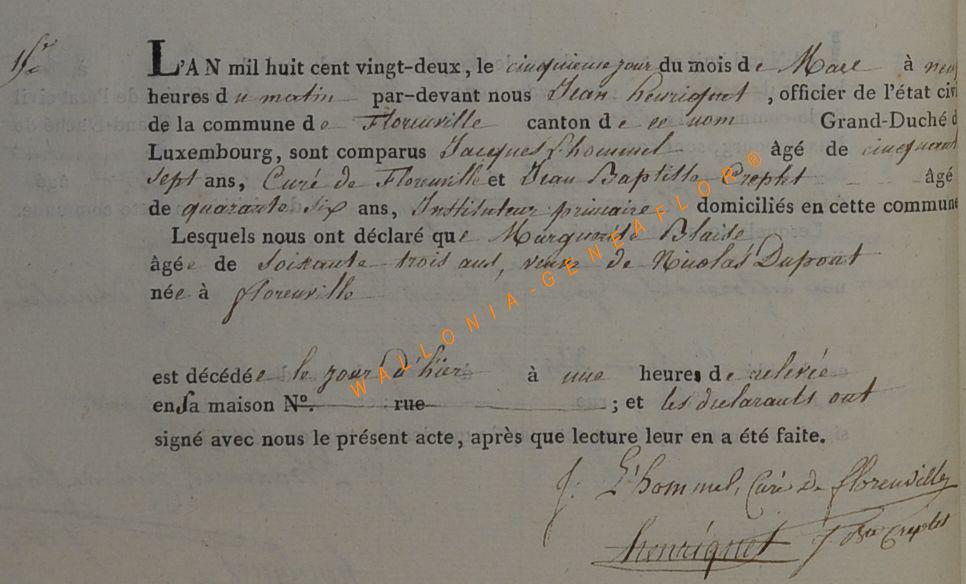 L'AN mil huit cent vingt-deux, le cinquieme jour du mois de Mars à neuf
heures du matin par-devant nous Jean henriquet, officier de l'état civi
de la commune de Florenville canton de ce nom Grand-Duché d
Luxembourg, sont comparus Jacques Lhommel âgé de cinquant
sept ans, Curé de Florenville et Jean Baptiste Creplet âgé
de quarante six ans, Instituteur primaire domiciliés en cette commune
Lesquels nous ont déclaré que Marguerite Blaise
âgée de soixante trois ans, veuve de Nicolas Dupont
née à florenville
est décédée le jour d'hier à une heures de relevée
en sa maison N°. rue ; et les declarants ont
signé avec nous le présent acte, après que lecture leur en a été faite.
J. L'hommel, Curé de florenville
henriquet J Bte Creplet
WALLONIA-GENEAFLOR®